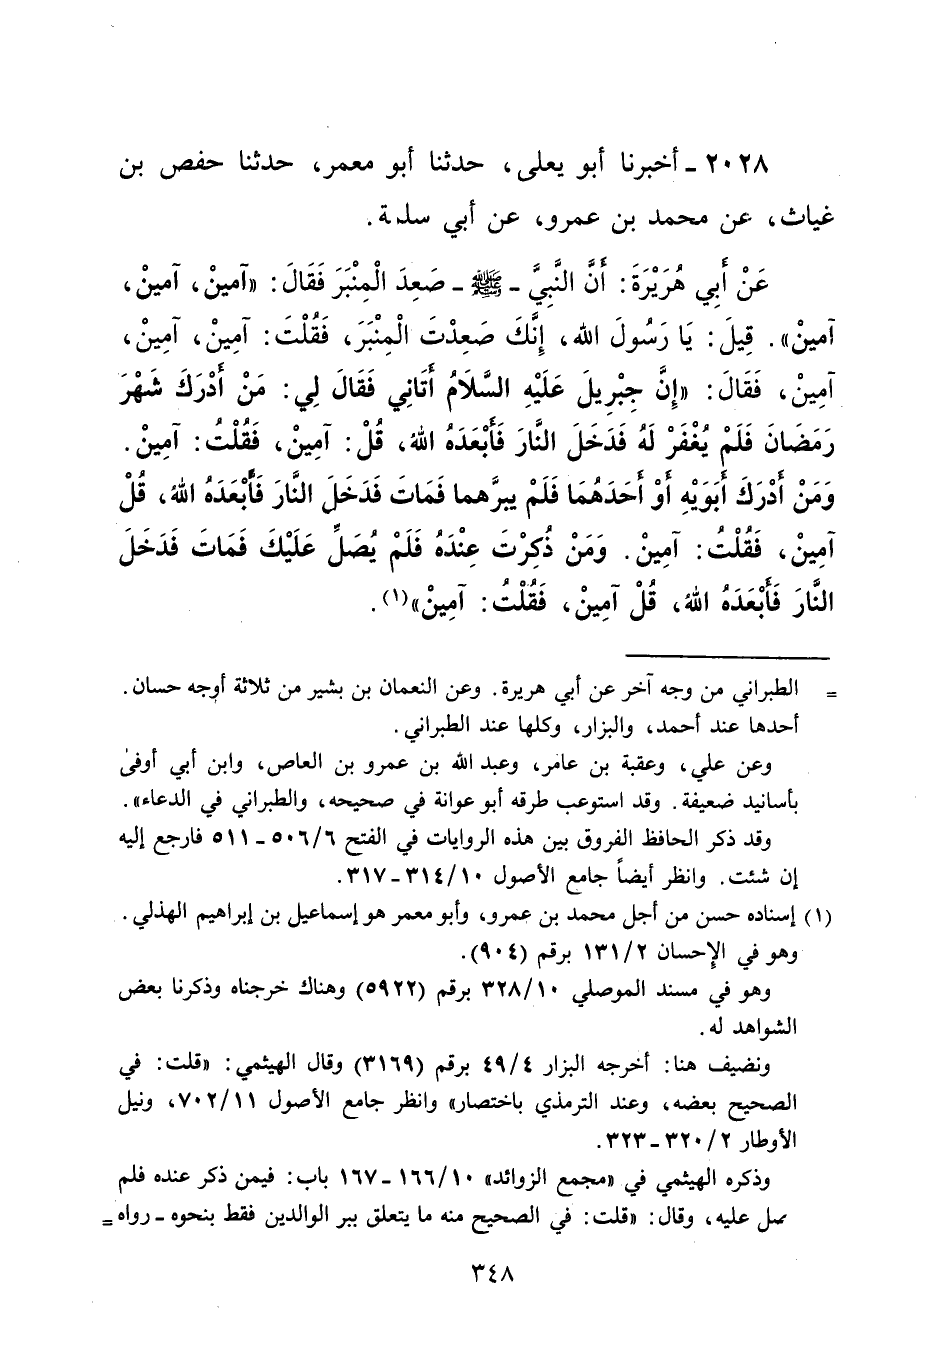 ٢٠٢٨ ـ أخبرنا أبو يعلى، حدثنا أبو معمر، حدثنا حفص بن
غياث، عن محمد بن عمرو، عن أبي سلمة.
عَنْ أَبِي هُرَيْرَةَ: أَنَّ النَّبِيَّ ـ ﷺ ـ صَعِدَ الْمِنْبَرَ فَقَالَ: «آمِينْ، آمِينْ،
آمِينْ». قِيلَ: يَا رَسُولَ الله، إِنَّكَ صَعِدْتَ الْمِنْبَرَ، فَقُلْتَ: آمِينْ، آمِينْ،
آمِينْ، فَقَالَ: «إِنَّ جِبْرِيلَ عَلَيْهِ السَّلَامُ أَتَانِي فَقَالَ لِي: مَنْ أَدْرَكَ شَهْرَ
رَمَضَانَ فَلَمْ يُغْفَرْ لَهُ فَدَخَلَ النَّارَ فَأَبْعَدَهُ اللهُ، قُلْ: آمِينْ، فَقُلْتُ: آمِينْ.
وَمَنْ أَدْرَكَ أَبَوَيْهِ أَوْ أَحَدَهُمَا فَلَمْ يبرَّهما فَمَاتَ فَدَخَلَ النَّارَ فَأَبْعَدَهُ اللهُ، قُلْ
آمِينْ، فَقُلْتُ: آمِينْ. وَمَنْ ذُكِرْتَ عِنْدَهُ فَلَمْ يُصَلِّ عَلَيْكَ فَمَاتَ فَدَخَلَ
النَّارَ فَأَبْعَدَهُ اللهُ، قُلْ آمِينْ، فَقُلْتُ: آمِينْ»(١).
= الطبراني من وجه آخر عن أبي هريرة. وعن النعمان بن بشير من ثلاثة أوجه حسان.
أحدها عند أحمد، والبزار، وكلها عند الطبراني.
وعن علي، وعقبة بن عامر، وعبد الله بن عمرو بن العاص، وابن أبي أوفىٰ
بأسانيد ضعيفة. وقد استوعب طرقه أبو عوانة في صحيحه، والطبراني في الدعاء».
وقد ذكر الحافظ الفروق بين هذه الروايات في الفتح ٥٠٦/٦ ـ ٥١١ فارجع إليه
إن شئت. وانظر أيضاً جامع الأصول ٣١٤/١٠ ـ ٣١٧.
(١) إسناده حسن من أجل محمد بن عمرو، وأبو معمر هو إسماعيل بن إبراهيم الهذلي.
وهو في الإحسان ١٣١/٢ برقم (٩٠٤).
وهو في مسند الموصلي ٣٢٨/١٠ برقم (٥٩٢٢) وهناك خرجناه وذكرنا بعض
الشواهد له.
ونضيف هنا: أخرجه البزار ٤٩/٤ برقم (٣١٦٩) وقال الهيثمي: «قلت: في
الصحيح بعضه، وعند الترمذي باختصار» وانظر جامع الأصول ٧٠٢/١١، ونيل
الأوطار ٣٢٠/٢ ـ ٣٢٣.
وذكره الهيثمي في «مجمع الزوائد» ١٦٦/١٠ ـ ١٦٧ باب: فيمن ذكر عنده فلم
يصل عليه، وقال: «قلت: في الصحيح منه ما يتعلق ببر الوالدين فقط بنحوه ـ رواه =
٣٤٨